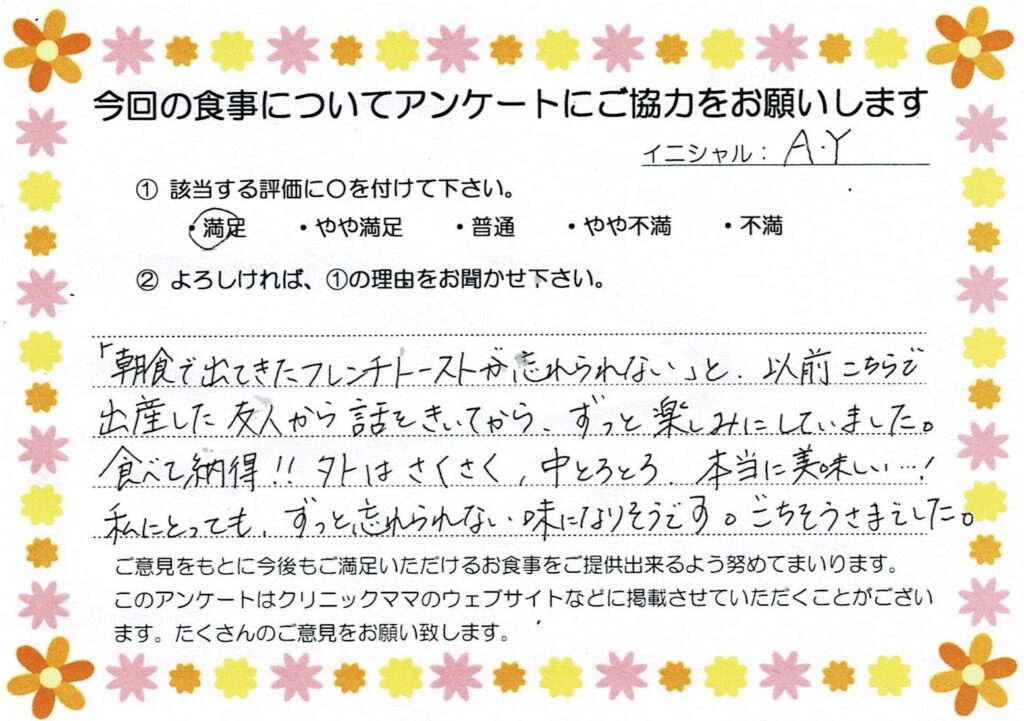 今回の食事についてアンケートにご協力をお願いします
イニシャル: A.Y
① 該当する評価に○を付けて下さい。
・満足 ・やや満足 ・普通 ・やや不満 ・不満
② よろしければ、①の理由をお聞かせ下さい。
「朝食で出てきたフレンチトーストが忘れられない」と、以前こちらで
出産した友人から話をきいてから、ずっと楽しみにしていました。
食べて納得!! 外はさくさく、中とろとろ、本当に美味しい…!
私にとっても、ずっと忘れられない味になりそうです。ごちそうさまでした。
ご意見をもとに今後もご満足いただけるお食事をご提供出来るよう努めてまいります。
このアンケートはクリニックママのウェブサイトなどに掲載させていただくことがござい
ます。たくさんのご意見をお願い致します。